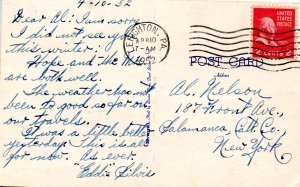 4-10-52
Dear Al: I am sorry
I did not see you
this winter.
Hope and the Mrs
are both well.
The weather has not
been to good so far on
our travels.
It was a little better
yesterday. This is all
for now. As ever.
"Eddie" Silvis
LEIGHTON, PA.
APR 10
7-AM
1952
UNITED STATES
POSTAGE
2 CENTS 2
POST CARD
Address
Al. Nelson
187 Front Ave.,
Salamanca, Catt. Co.,
New York